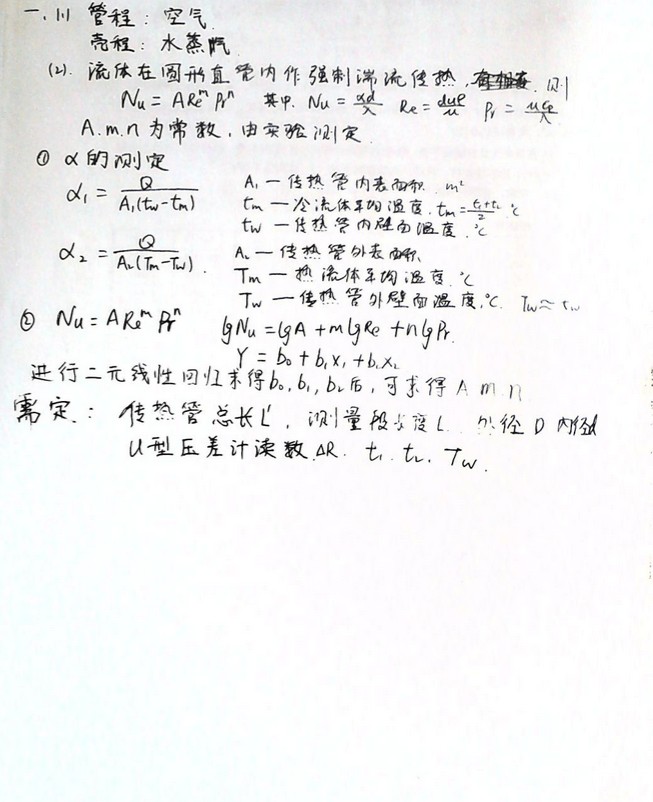 一.(1) 管程：空气.
壳程：水蒸汽.
(2). 流体在圆形直管内作强制湍流传热，则
Nu = A Re^m Pr^n 其中. Nu = αd/λ Re = duρ/μ Pr = μCp/λ
A.m.n 为常数，由实验测定.
① α的测定
α₁ = Q/A₁(tw-tm) A₁ — 传热管内表面积. m²
tm — 冷流体平均温度. tm = (t₁+t₂)/2 ℃
tw — 传热管内壁面温度. ℃
α₂ = Q/A₂(Tm-Tw). A₂ — 传热管外表面积.
Tm — 热流体平均温度. ℃
Tw — 传热管外壁面温度. ℃. Tw ≈ tw
② Nu = A Re^m Pr^n lgNu = lgA + mlgRe + nlgPr.
Y = b₀ + b₁x₁ + b₂x₂
进行二元线性回归求得b₀, b₁, b₂后，可求得 A m n
需定：传热管总长L', 测量段长度L. 外径 D 内径d
U型压差计读数.ΔR. t₁. t₂. Tw.